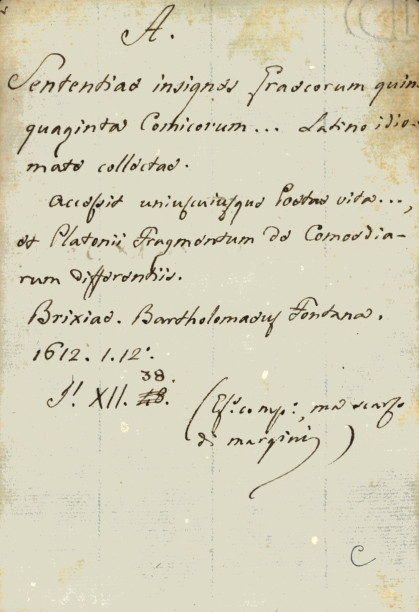 A.
Sententiae insignes Graecorum quin
quaginta Comicorum... Latino idio-
mate collectae.
Accessit uniuscuiusque Poetae vita...,
et Platonii Fragmentum de Comoedia-
rum differentiis.
Brixiae. Bartholomaeus Fontana.
1612. 1.12°.
38.
XII. 48.
(Es. comp:, ma scarso
di margini)
C